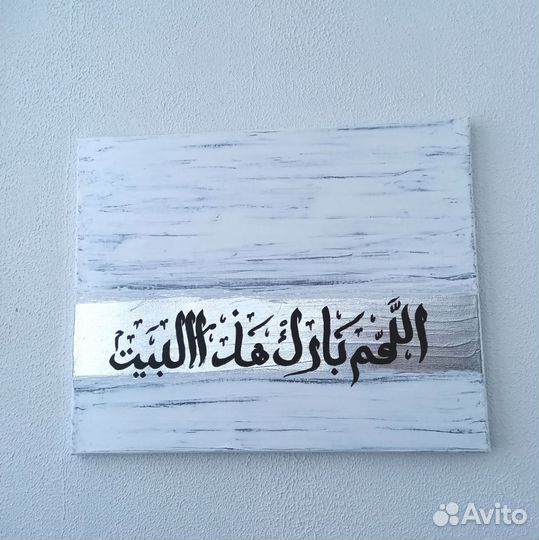 اللَّهُم بَارِكْ هَذَا البَيَت
Avito